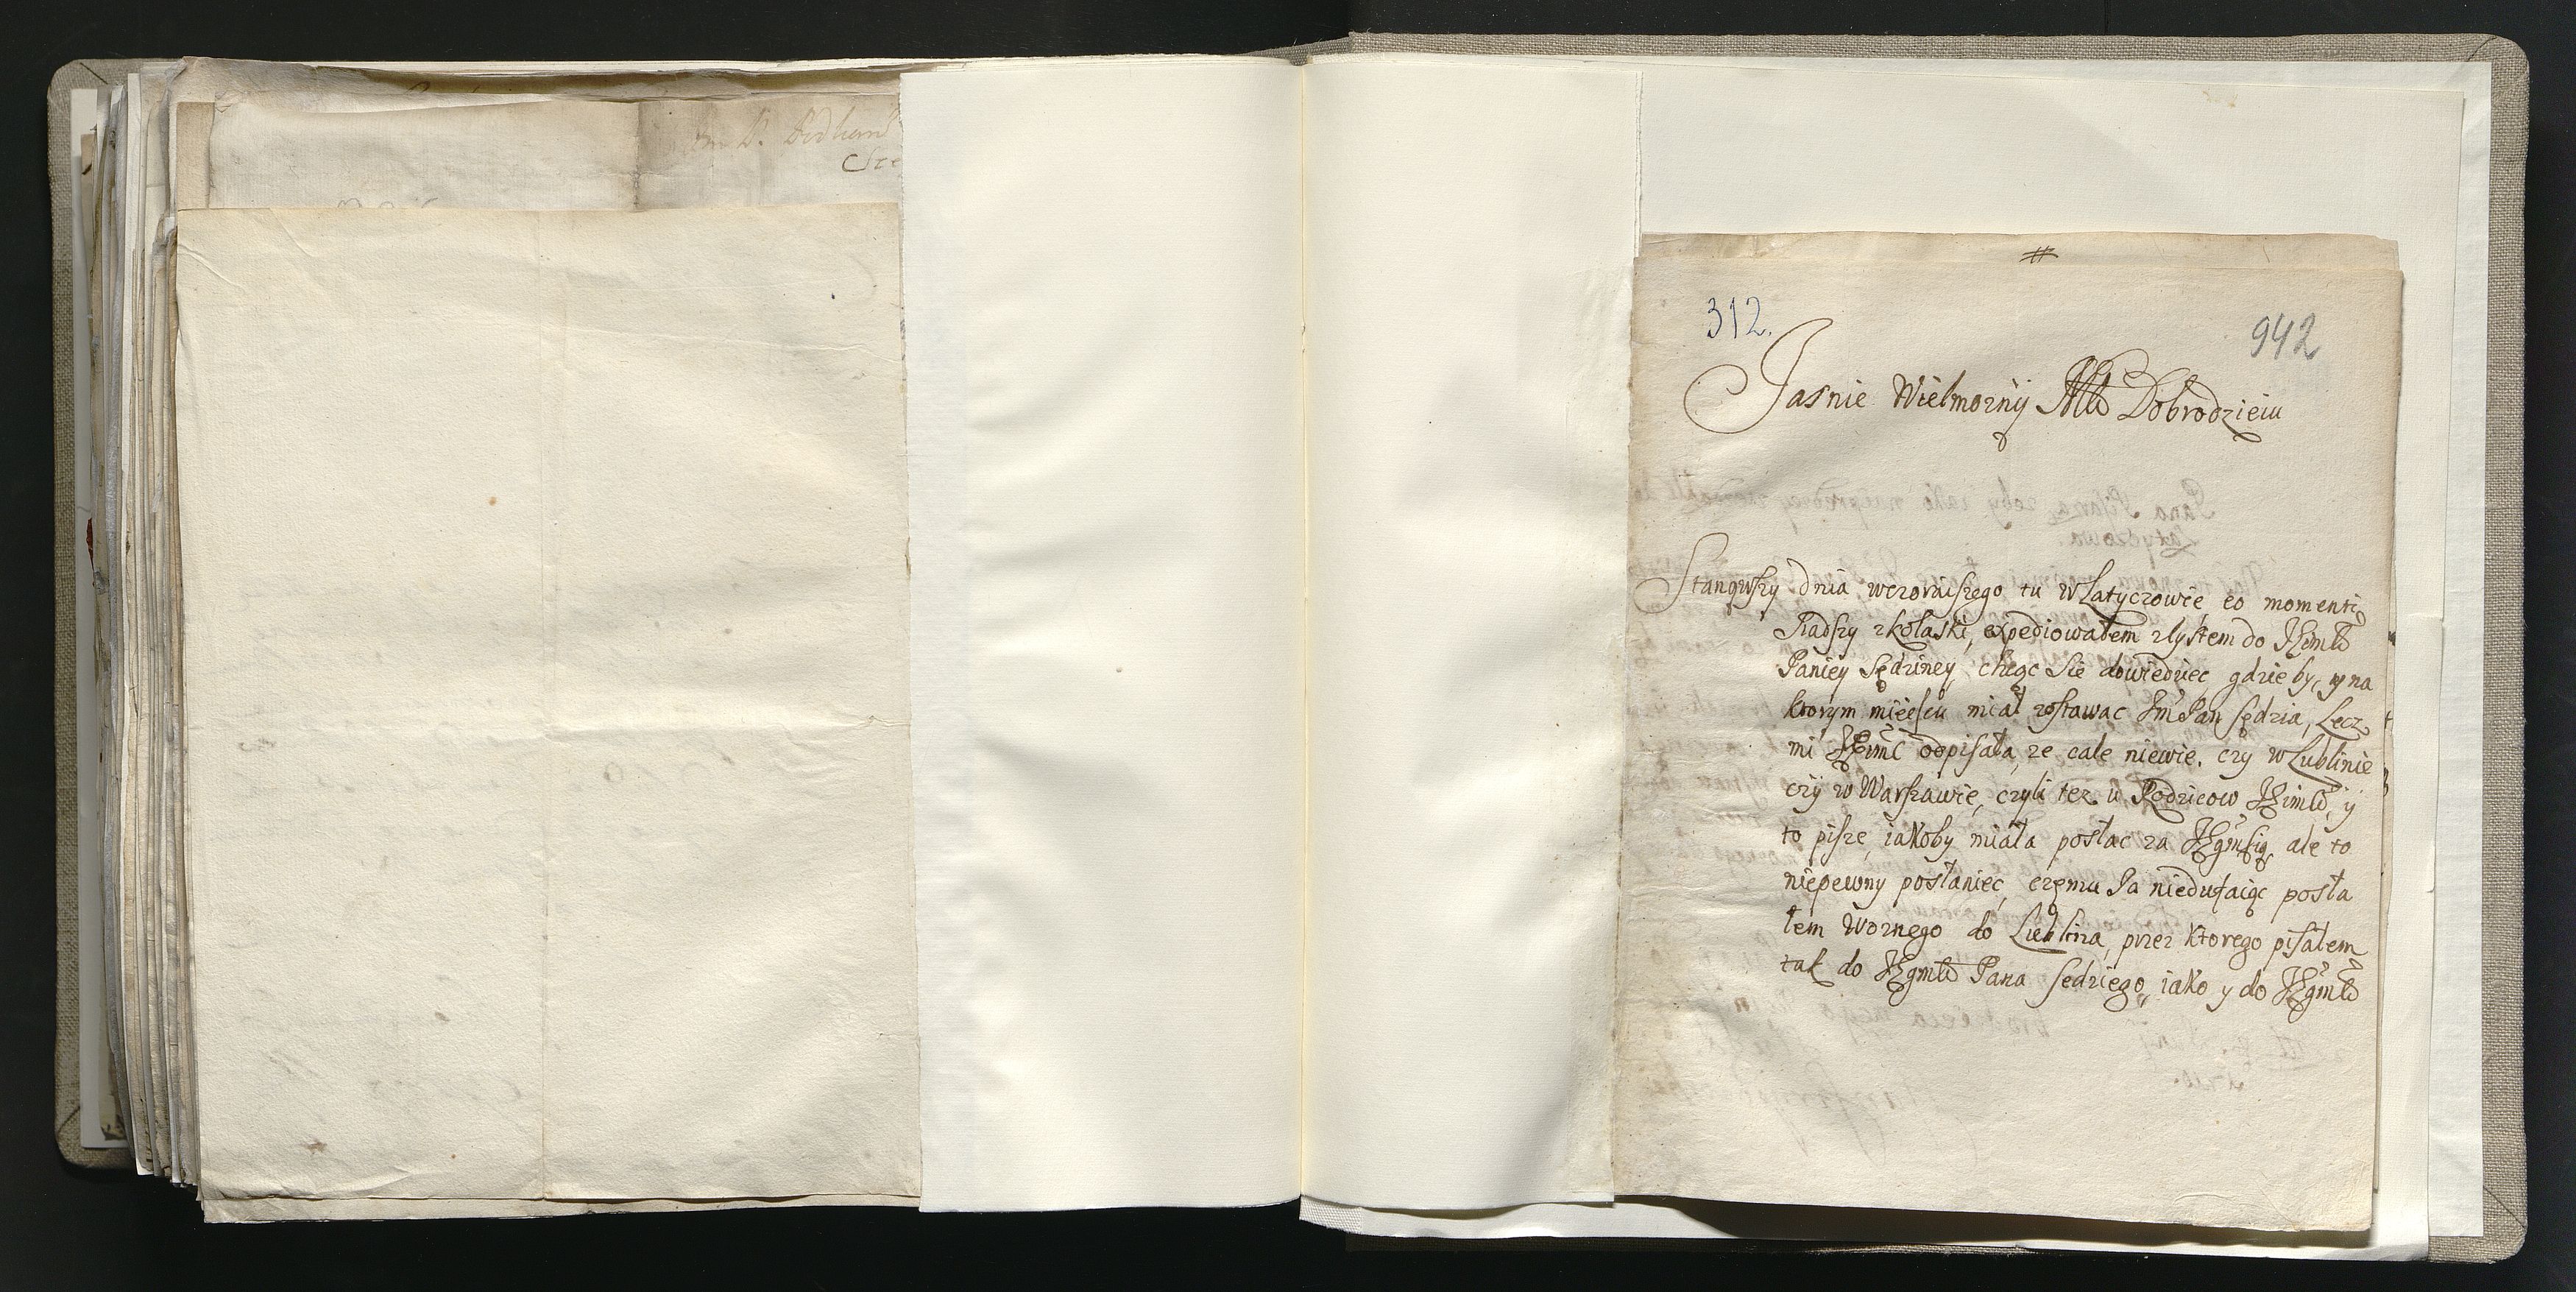 #
312.
942
Jasnie Wielmozny Mtb Dobrodzieiu
Stanąwszy dnia wczoraiszego tu w Latyczowie, eo momento
Radszy zkolaski, expediowałem zlystem do
Paniey Sędziney, chcąc sie dowiedziec gdzie by, y na
ktorym mieiscu miał zostawac Jm Pan sędzia, Lecz
mi odpisała, ze cale niewie. czy w Lublinie
czy w Warszawie, czyli tez u Rodzicow y
to pisze, iakoby miała posłac za ale to
niepewny posłaniec, czemu Ja niedufaiąc posła
łem Woznego do Lublina, przez ktorego pisałem
tak do Pana sedziego, iako y do